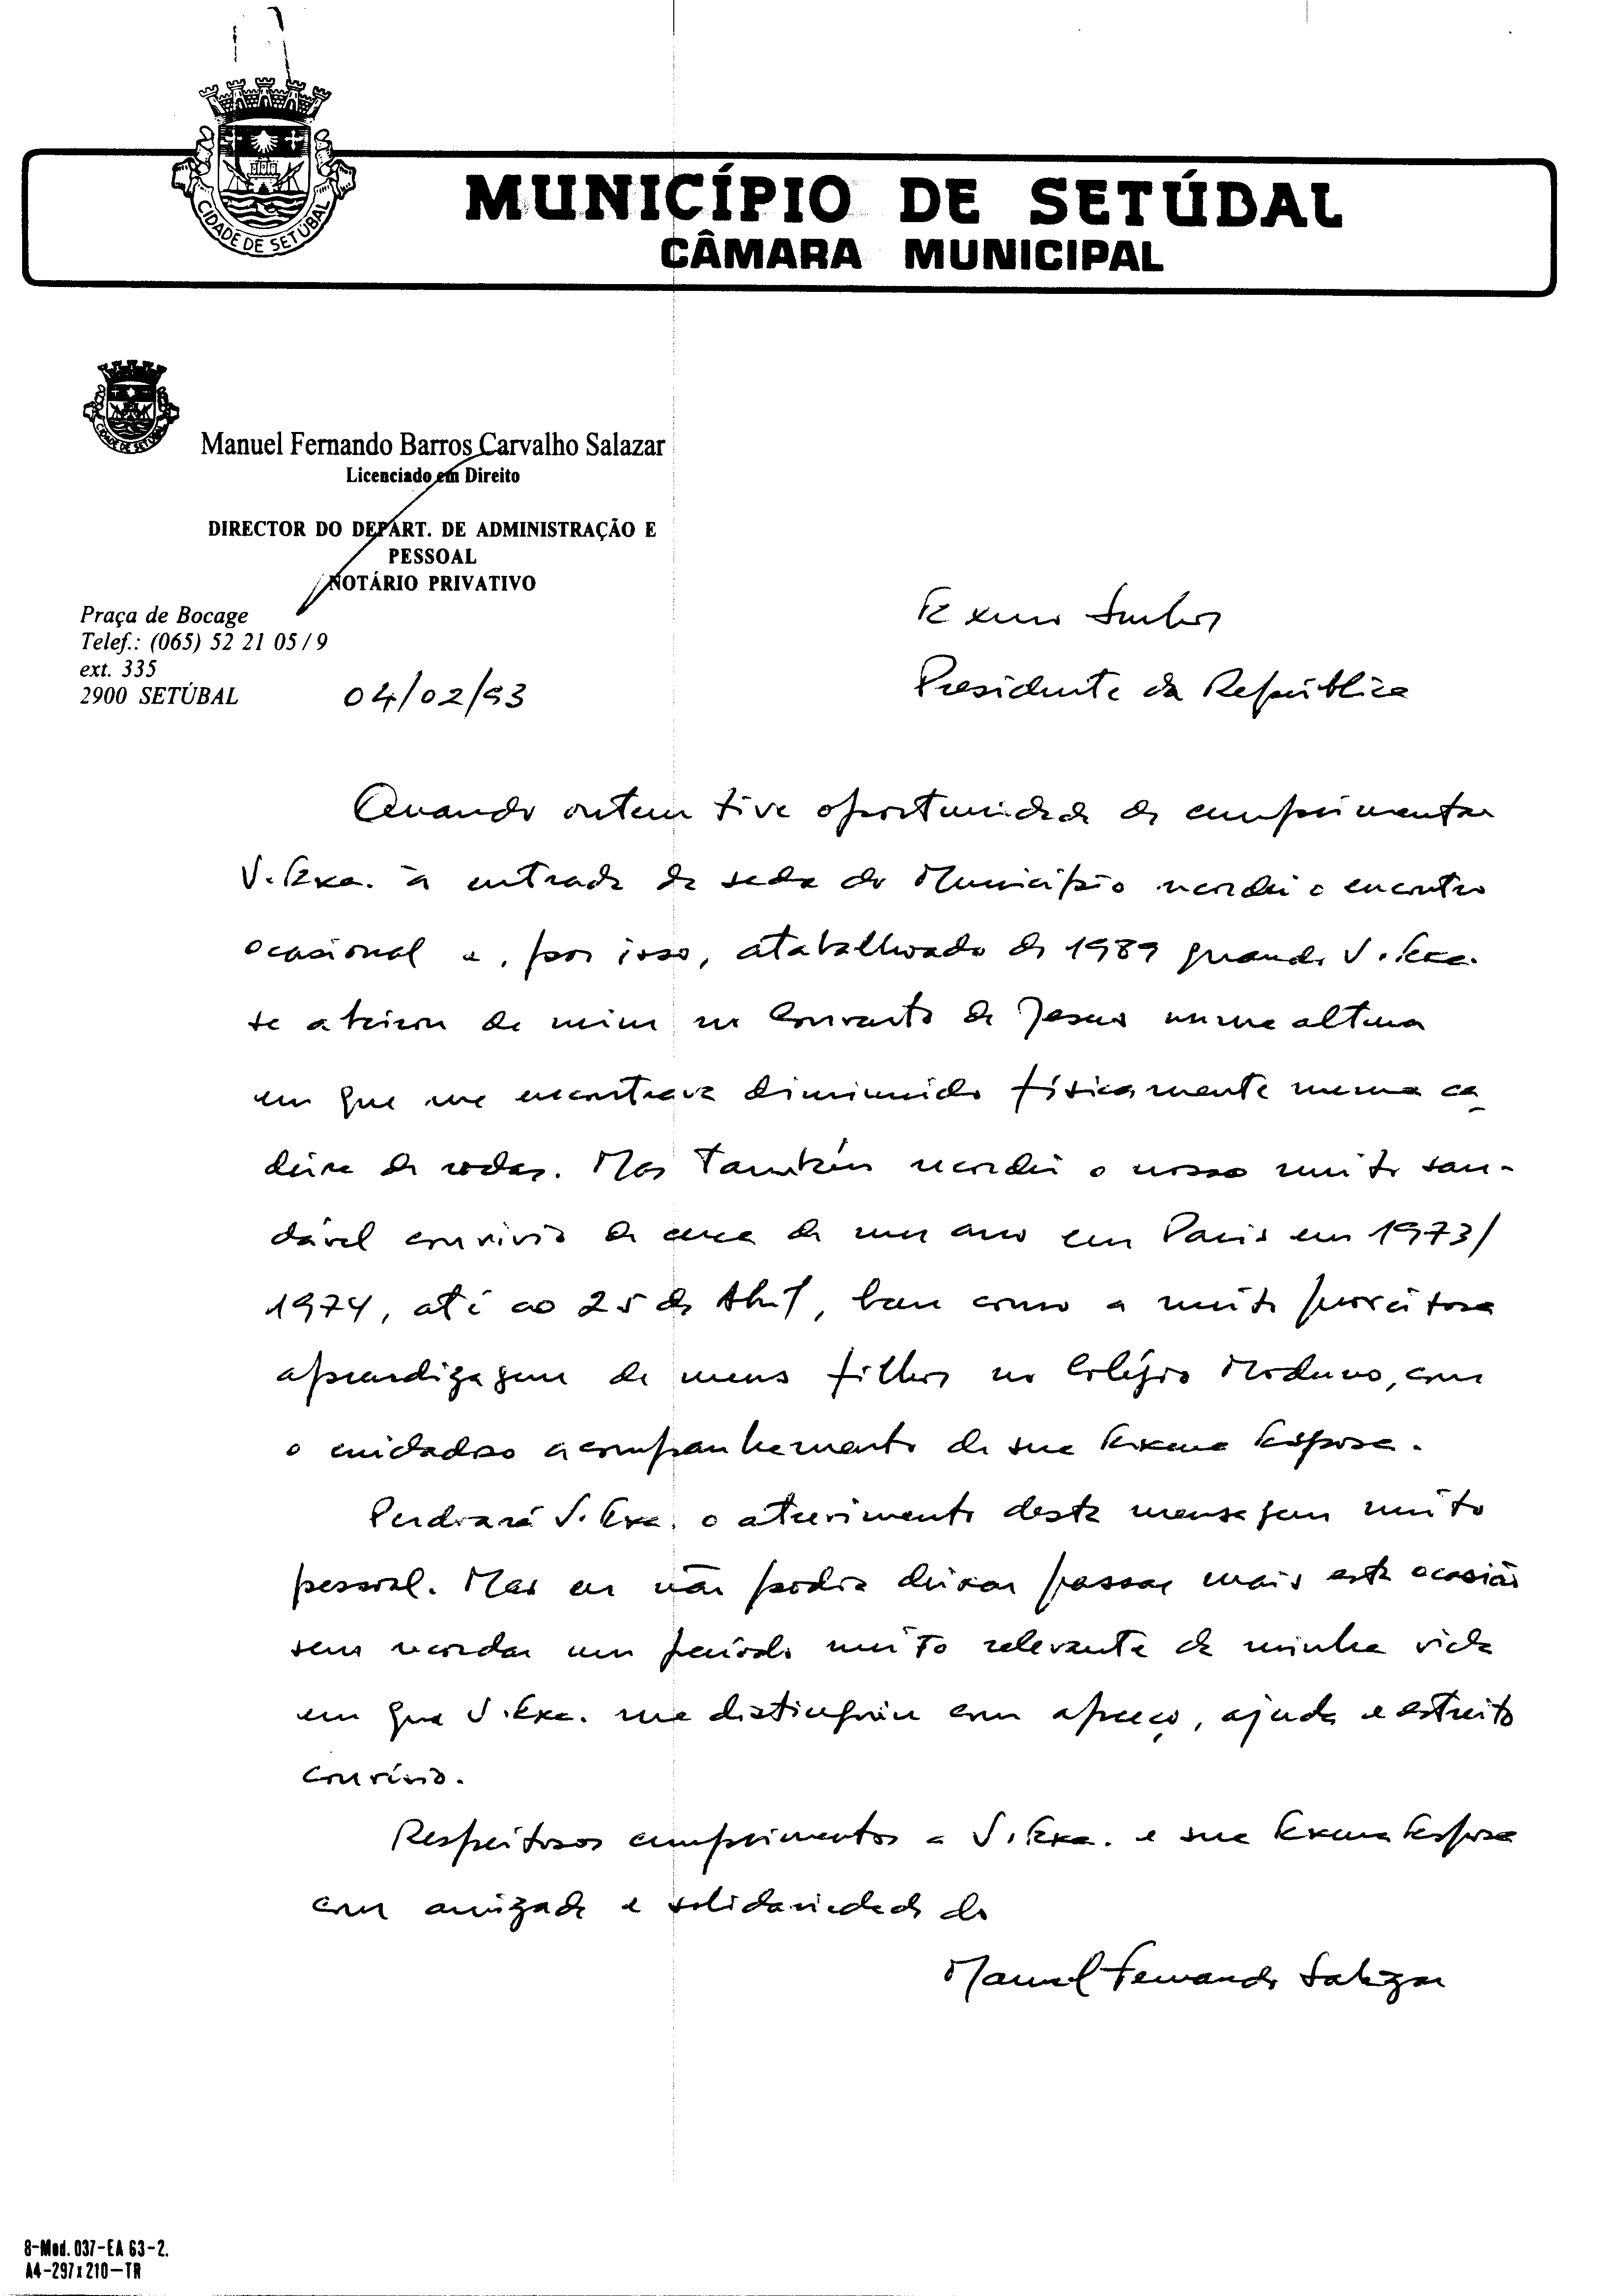 CIDADE DE SETÚBAL
MUNICÍPIO DE SETÚBAL
CÂMARA MUNICIPAL
CIDADE DE SETÚBAL
Manuel Fernando Barros Carvalho Salazar
Licenciado em Direito
DIRECTOR DO DEPART. DE ADMINISTRAÇÃO E
PESSOAL
NOTÁRIO PRIVATIVO
Praça de Bocage
Telef.: (065) 52 21 05 / 9
ext. 335
2900 SETÚBAL
04/02/93
Exmo Senhor
Presidente da República
Quando ontem tive oportunidade de cumprimentar
V. Exa. à entrada da sede do Município recordei o encontro
ocasional e, por isso, atabalhoado de 1989 quando V. Exa.
se abeirou de mim no Convento de Jesus numa altura
em que me encontrava diminuido físicamente numa ca-
deira de rodas. Mas também recordei o nosso muito sau-
dável convívio de cerca de um ano em Paris em 1973/
1974, até ao 25 de Abril, bem como a muito proveitosa
aprendizagem de meus filhos no Colégio Moderno, com
o cuidadoso acompanhamento de sua Exema Esposa.
Perdoará V. Exa. o atrevimento desta mensagem muito
pessoal. Mas eu não podia deixar passar mais esta ocasião
sem recordar um período muito relevante da minha vida
em que V. Exa. me distinguiu com apreço, ajuda e estreito
convívio.
Respeitosos cumprimentos a V. Exa. e sua Exema Esposa
com amizade e solidariedade do
Manuel Fernando Salazar
8-Mod. 037-EA 63-2.
A4-297x210-TR